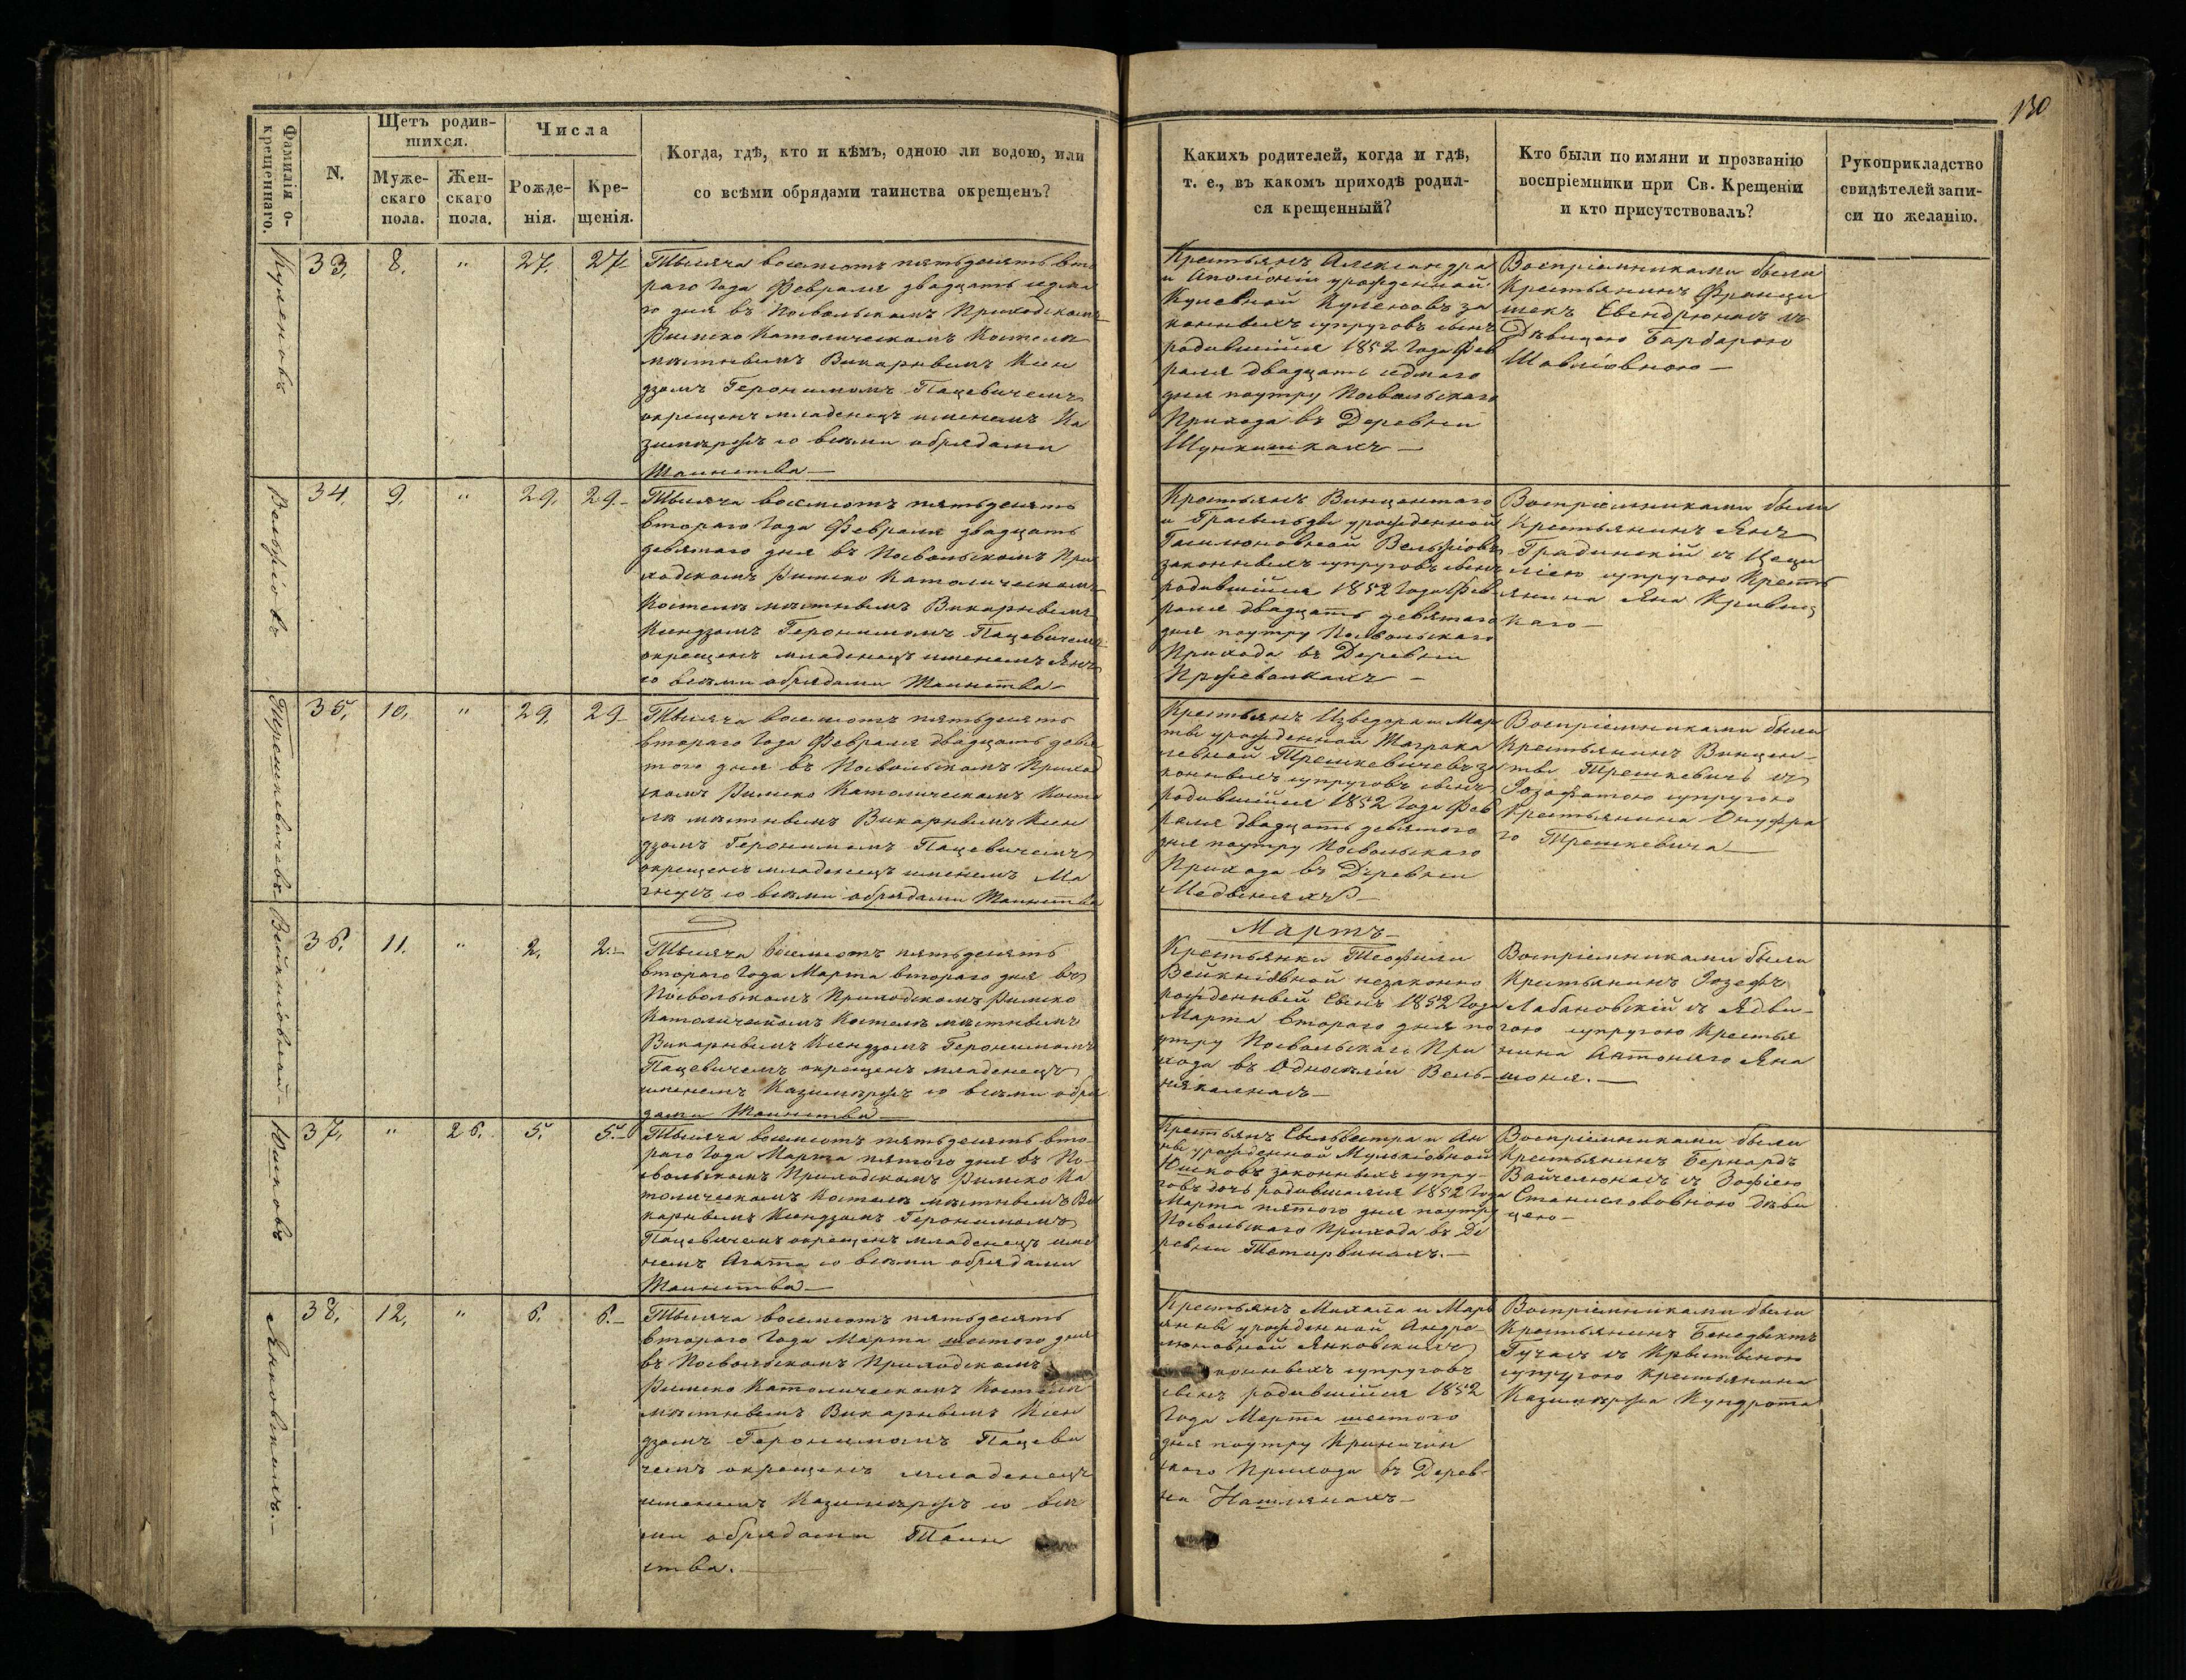 130
Фамилія о-
крещеннаго.
N.
Щетъ родив-
шихся.
Муже-
скаго
пола.
Жен-
скаго
пола.
Числа
Рожде-
нія.
Кре-
щенія.
Когда, гдѣ, кто и кѣмъ, одною ли водою, или
со всѣми обрядами таинства окрещенъ?
Какихъ родителей, когда и гдѣ,
т. е., въ какомъ приходѣ родил-
ся крещенный?
Кто были по имяни и прозванію
воспріемники при Св. Крещеніи
и кто присутствовалъ?
Рукоприкладство
свидѣтелей запи-
си по желанію.
Куленовъ
33. 8. " 27. 27.
Тысяча восемсотъ пятьдесятъ вто
раго Года Февраля двадцать седма
го дня въ Посвольскомъ Приходскомъ
Римско Католическомъ Костелѣ
мѣстнымъ Викарнымъ Ксен
дзомъ Геронимомъ Пацевичемъ
окрещенъ младенецъ именемъ Ка
зимѣржъ со всѣми обрядами
Таинства —
Крестьянъ Александра
и Аполіоніи урожденной
законныхъ супруговъ сынъ
родившійся 1852 Года Фев
раля двадцать седмаго
дня поутру Посвольскаго
Прихода въ Деревни
Воспріемниками были
Крестьянинъ Франци
шекъ съ
Дѣвицею Барбарою
34. 9. " 29. 29. —
Тысяча восемсотъ пятьдесятъ
втораго Года Февраля двадцать
девятаго дня въ Посвольскомъ При
ходскомъ Римско Католическомъ
Костелѣ мѣстнымъ Викарнымъ
Ксендзомъ Геронимомъ Пацевичемъ
окрещенъ младенецъ именемъ Янъ
со всѣми обрядами Таинства —
Крестьянъ Винцентаго
и урожденной
законныхъ супруговъ сынъ
родившійся 1852 Года Фев
раля двадцать девятаго
дня поутру Посвольскаго
Прихода въ Деревни
Воспріемниками были
Крестьянинъ Янъ
Градинскій съ Цеци
ліею супругою Кресть
янина Яна Кривиц
каго —
Трешкевичевъ
35. 10. " 29. 29 —
Тысяча восемсотъ пятьдесятъ
втораго Года Февраля двадцать девя
того дня въ Посвольскомъ Приход
скомъ Римско Католическомъ Косте
лѣ мѣстнымъ Викарнымъ Ксен
дзомъ Геронимомъ Пацевичемъ
окрещенъ младенецъ именемъ Ма
со всѣми обрядами Таинства
Крестьянъ Извидора и Мар
ты урожденной
Трешкевичевъ за
конныхъ супруговъ сынъ
родившійся 1852 Года Фев
раля двадцать девятого
дня поутру Посвольскаго
Прихода въ Деревни
Воспріемниками были
Крестьянинъ Винцен-
ты Трешкевичъ съ
Іозафатою супругою
Крестьянина Онуфра
го Трешкевича —
Мартъ —
36. 11. " 2. 2. —
Тысяча восемсотъ пятьдесятъ
втораго Года Марта втораго дня въ
Посвольскомъ Приходскомъ Римско
Католическомъ Костелѣ мѣстнымъ
Викарнымъ Ксендзомъ Геронимомъ
Пацевичемъ окрещенъ младенецъ
именемъ Казимѣржъ со всѣми обря
дами Таинства —
Крестьянки Теофили
незаконно
рожденный сынъ 1852 Года
Марта втораго дня по
утру Посвольскаго При
хода въ
Воспріемниками были
Крестьянинъ Іозефъ
Лабановскій съ Ядви-
гою супругою Крестья
нина Антоняго Яна
шоня. —
Юшковъ
37. " 26. 5. 5. —
Тысяча восемсотъ пятьдесятъ вто
раго Года Марта пятого дня въ По-
свольскомъ Приходскомъ Римско Ка
толическомъ Костелѣ мѣстнымъ Ви
карнымъ Ксендзомъ Геронимомъ
Пацевичемъ окрещенъ младенецъ име
немъ Агата со всѣми обрядами
Таинства —
Крестьянъ Сильвестра и Ан
ны урожденной
Юшковъ законныхъ супру-
говъ дочь родившаяся 1852 Года
Марта пятого дня поутру
Посвольскаго Прихода въ Де
ревни Тетирвинахъ. —
Воспріемниками были
Крестьянинъ Бернардъ
съ Зофіею
Станиславовною дѣви
цею —
Янковскихъ. —
38. 12. " 6. 6. —
Тысяча восемсотъ пятьдесятъ
втораго Года Марта шестого дня
въ Посвольскомъ Приходскомъ
Римско Католическомъ Костелѣ
мѣстнымъ Викарнымъ Ксен
дзомъ Геронимомъ Пацеви
чемъ окрещенъ младенецъ
именемъ Казимѣржъ со всѣ
ми обрядами Таин
ства. —
Крестьянъ Михала и Марі
янны урожденной Андрe-
Янковскихъ
конныхъ супруговъ
сынъ родившійся 1852
Года Марта шестого
дня поутру Криничин
скаго Прихода въ Дерев-
ни
Воспріемниками были
Крестьянинъ Бенедыктъ
съ Крыстыною
супругою Крестьянина
Казимѣржа Кундрота